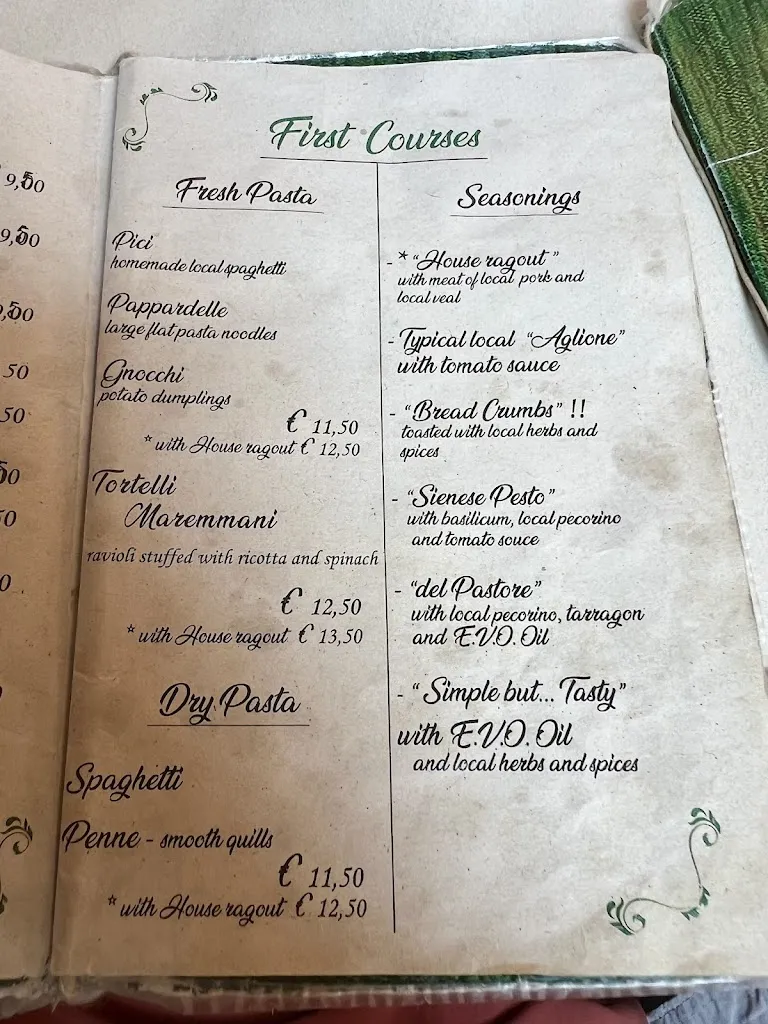 9,50
9,50
9,50
50
50
50
50
0
First Courses
Fresh Pasta
Pici
homemade local spaghetti
Pappardelle
large flat pasta noodles
Gnocchi
potato dumplings
€ 11,50
*with House ragout € 12,50
Tortelli
Maremmani
ravioli stuffed with ricotta and spinach
€ 12,50
*with House ragout € 13,50
Dry Pasta
Spaghetti
Penne - smooth quills
€ 11,50
*with House ragout € 12,50
Seasonings
- * "House ragout"
with meat of local pork and
local veal
- Typical local "Aglione"
with tomato sauce
- "Bread Crumbs" !!
toasted with local herbs and
spices
- "Sienese Pesto"
with basilicum, local pecorino
and tomato souce
- "del Pastore"
with local pecorino, tarragon
and E.V.O. Oil
- "Simple but... Tasty"
with E.V.O. Oil
and local herbs and spices